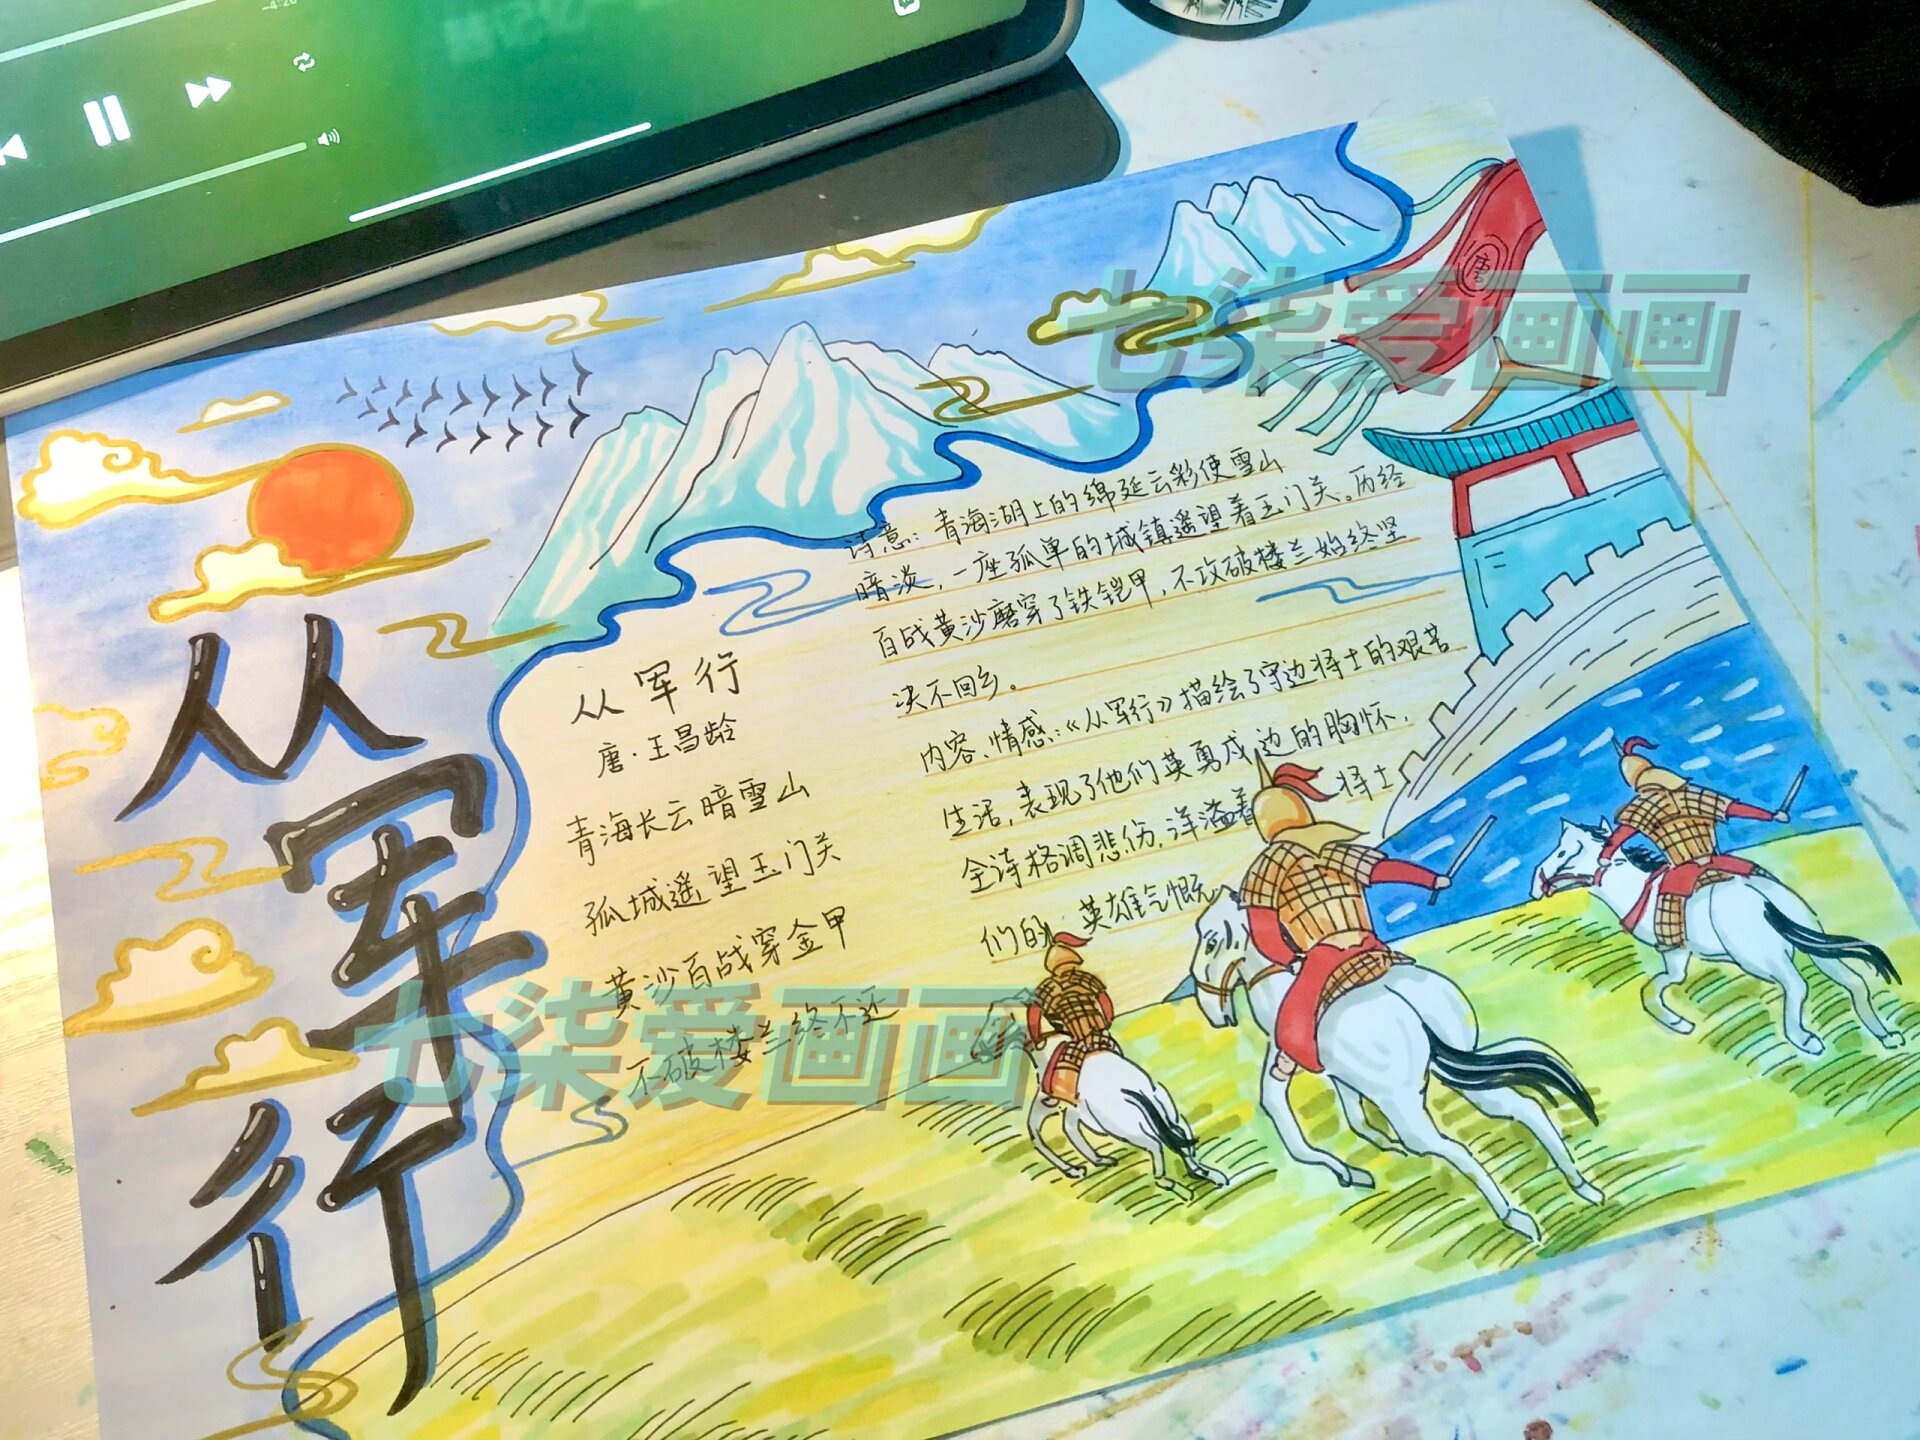 从军行
唐
从军行
唐·王昌龄
青海长云暗雪山
孤城遥望玉门关
黄沙百战穿金甲
不破楼兰终不还
诗意：青海湖上的绵延云彩使雪山
暗淡，一座孤单的城镇遥望着玉门关。历经
百战黄沙磨穿了铁铠甲，不攻破楼兰始终坚
决不回乡。
内容、情感：《从军行》描绘了守边将士的艰苦
生活，表现了他们英勇戍边的胸怀，
全诗格调悲伤，洋溢着 将士
们的 英雄气慨
七柒爱画画
七柒爱画画